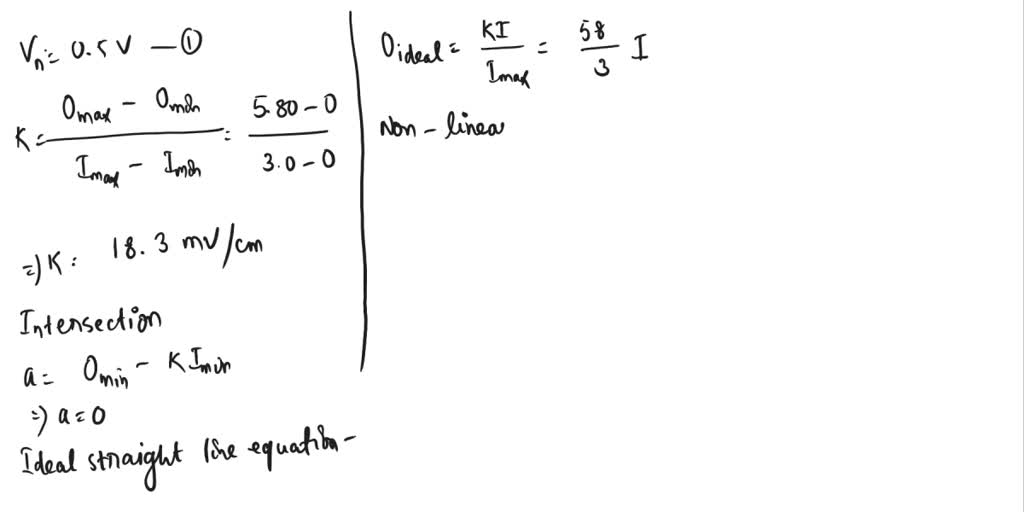 Vn = 0.5 V — ①
K = (Omax - Omin) / (Imax - Imin) = (5.80 - 0) / (3.0 - 0)
=) K = 18.3 mV/cm
Intersection
a = Omin - K Imin
=) a = 0
Ideal straight line equation -
Oideal = KI / Imax = 58/3 I
Non-linear